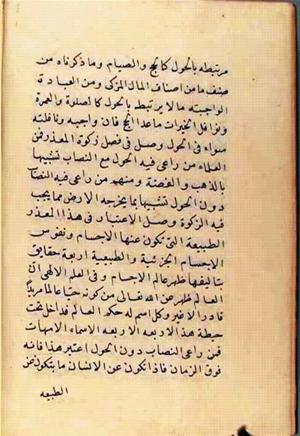 مرتبطه بالحول كالحج والصيام وما ذكرناه من
صنف ما من اصناف المال المزكى ومن العبادة
الواجبته ما لا يرتبط بالحول كالصلوة والعمرة
ونوافل الخيرات ما عدا الحج فان واجبه ونافلته
سواء فى الحول وصل فى فصل زكوة المعدن فمن
العلماء من راعى فيه الحول مع النصاب تشبيها
بالذهب والفضة ومنهم من راعى فيه النصاب
دون الحول تشبيها بما يخرجه الارض مما يجب
فيه الزكوة وصل الاعتبار فى هذا المعدن
الطبيعة التى تكون عنها الاجسام ونفوس
الاجسام الجزئية والطبيعية اربعة حقايق
بتاليفها ظهر عالم الاجسام وفى العلم الالهى ان
العالم ظهر عن الله تعالى من كونه حيا عالما مريدا
قادرا لا غير وكل اسم له حكم العالم فداخل تحت
حيطة هذه الاربعه الاسماء الامهات
فمن راعى النصاب دون الحول اعتبر هذا فانه
فوق الزمان فاذا تكون عن الانسان ما يتكون عن
الطبيعه